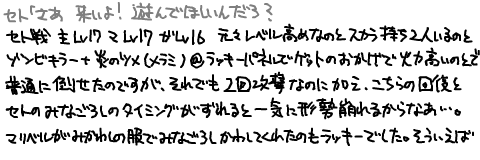 セト「さあ 来いよ！遊んでほしいんだろ？
セト戦 主Lv17 マLv17 ガLv16 元々レベル高めなのとスカラ持ち2人いるのと
ゾンビキラー＋炎のツメ(メラミ)@ラッキーパネルでゲットのおかげで火力高いので
普通に倒せたのですが、それでも2回攻撃なのに加え、こちらの回復と
セトのみなごろしのタイミングがずれると一気に形勢崩れるからなあ…。
マリベルがみかわしの服でみなごろしかわしてくれたのもラッキーでした。そういえば